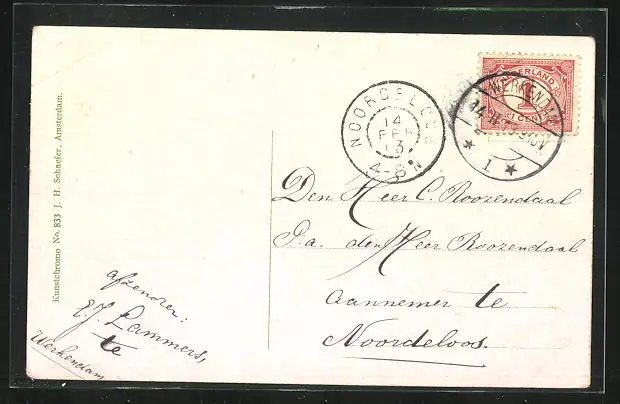 Kunstchromo No. 833 J. H. Schaefer, Amsterdam.
NEDERLAND
1
CENT
WERKENDAM
1
NOORDELOOS
14
FEB
13
4-8 N
Den Heer C. Roozendaal
P.a. den Heer Roozendaal
Aannemer te
Noordeloos.
afzender:
E J Lammers,
te
Werkendam